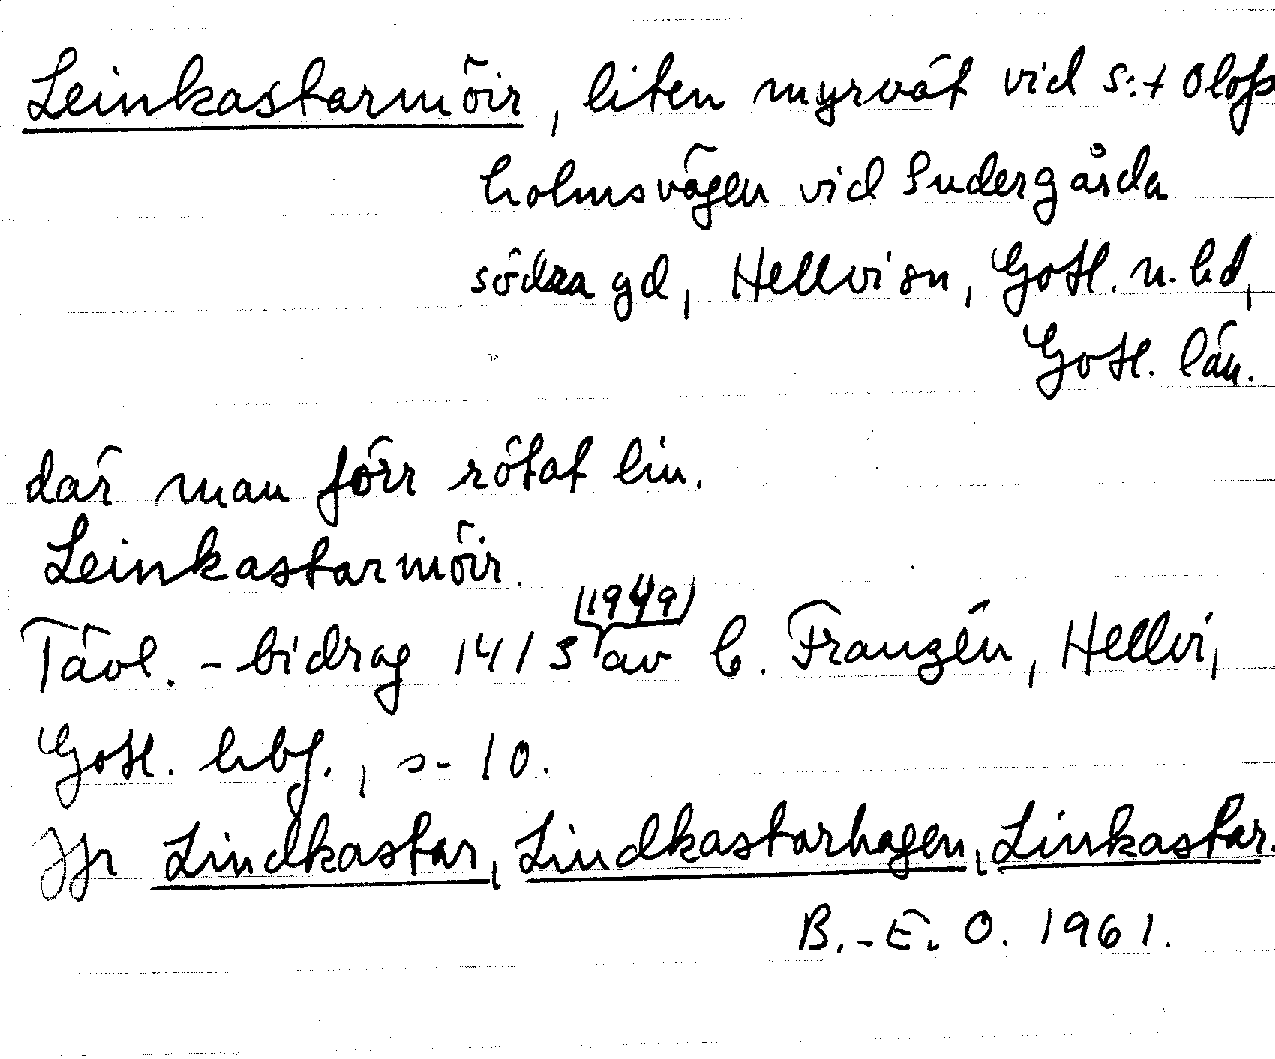 Leinkastarmöir, liten myrvät vid S:t Olofs
holmsvägen vid Sudergårda
södra gd, Hellvi sn, Gotl. n. hd,
Gotl. län.
där man förr rötat lin.
Leinkastarmöir.
(1949)
Tävl.-bidrag 1413 av C. Franzén, Hellvi,
Gotl. hbf., s. 10.
Jfr Lindkastar, Lindkastarhagen, Linkastar.
B.-E. O. 1961.